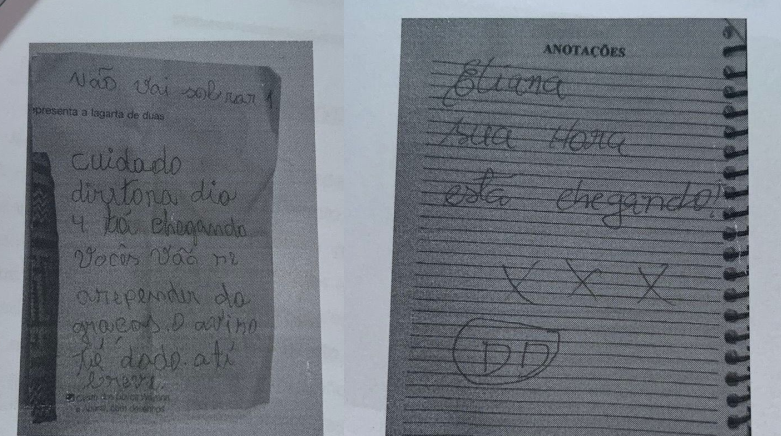 Não vai sobrar 1
presenta a lagarta de duas
cuidado
diretora dia
4 tá chegando
vocês vão se
arepender da
graças. O aviso
dado. ate
breve.
ANOTAÇÕES
Eliana
sua Hora
está chegando!
X X X
DD